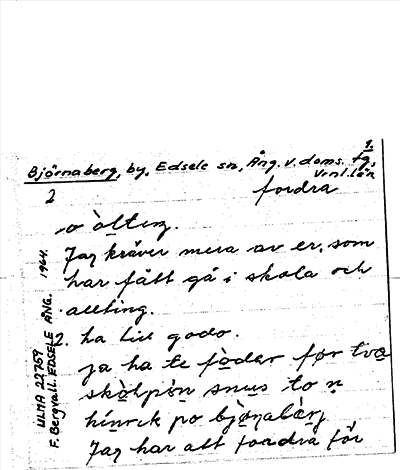 1.
Björnaberg, by, Edsele sn, Ång. v. doms. tg,
Vrnl. län
2
fordra
o òlteŋ.
Jag kräver mera av er, som
har fått gå i skola och
allting.
2. ha
ja ha te fòder før två
skòlpøn snus to ṇ
hinrik po bjòṇabàrj
Jag har att fordra för
ULMA 22759 1964.
F. Bergvall. EDSELE ÅNG.